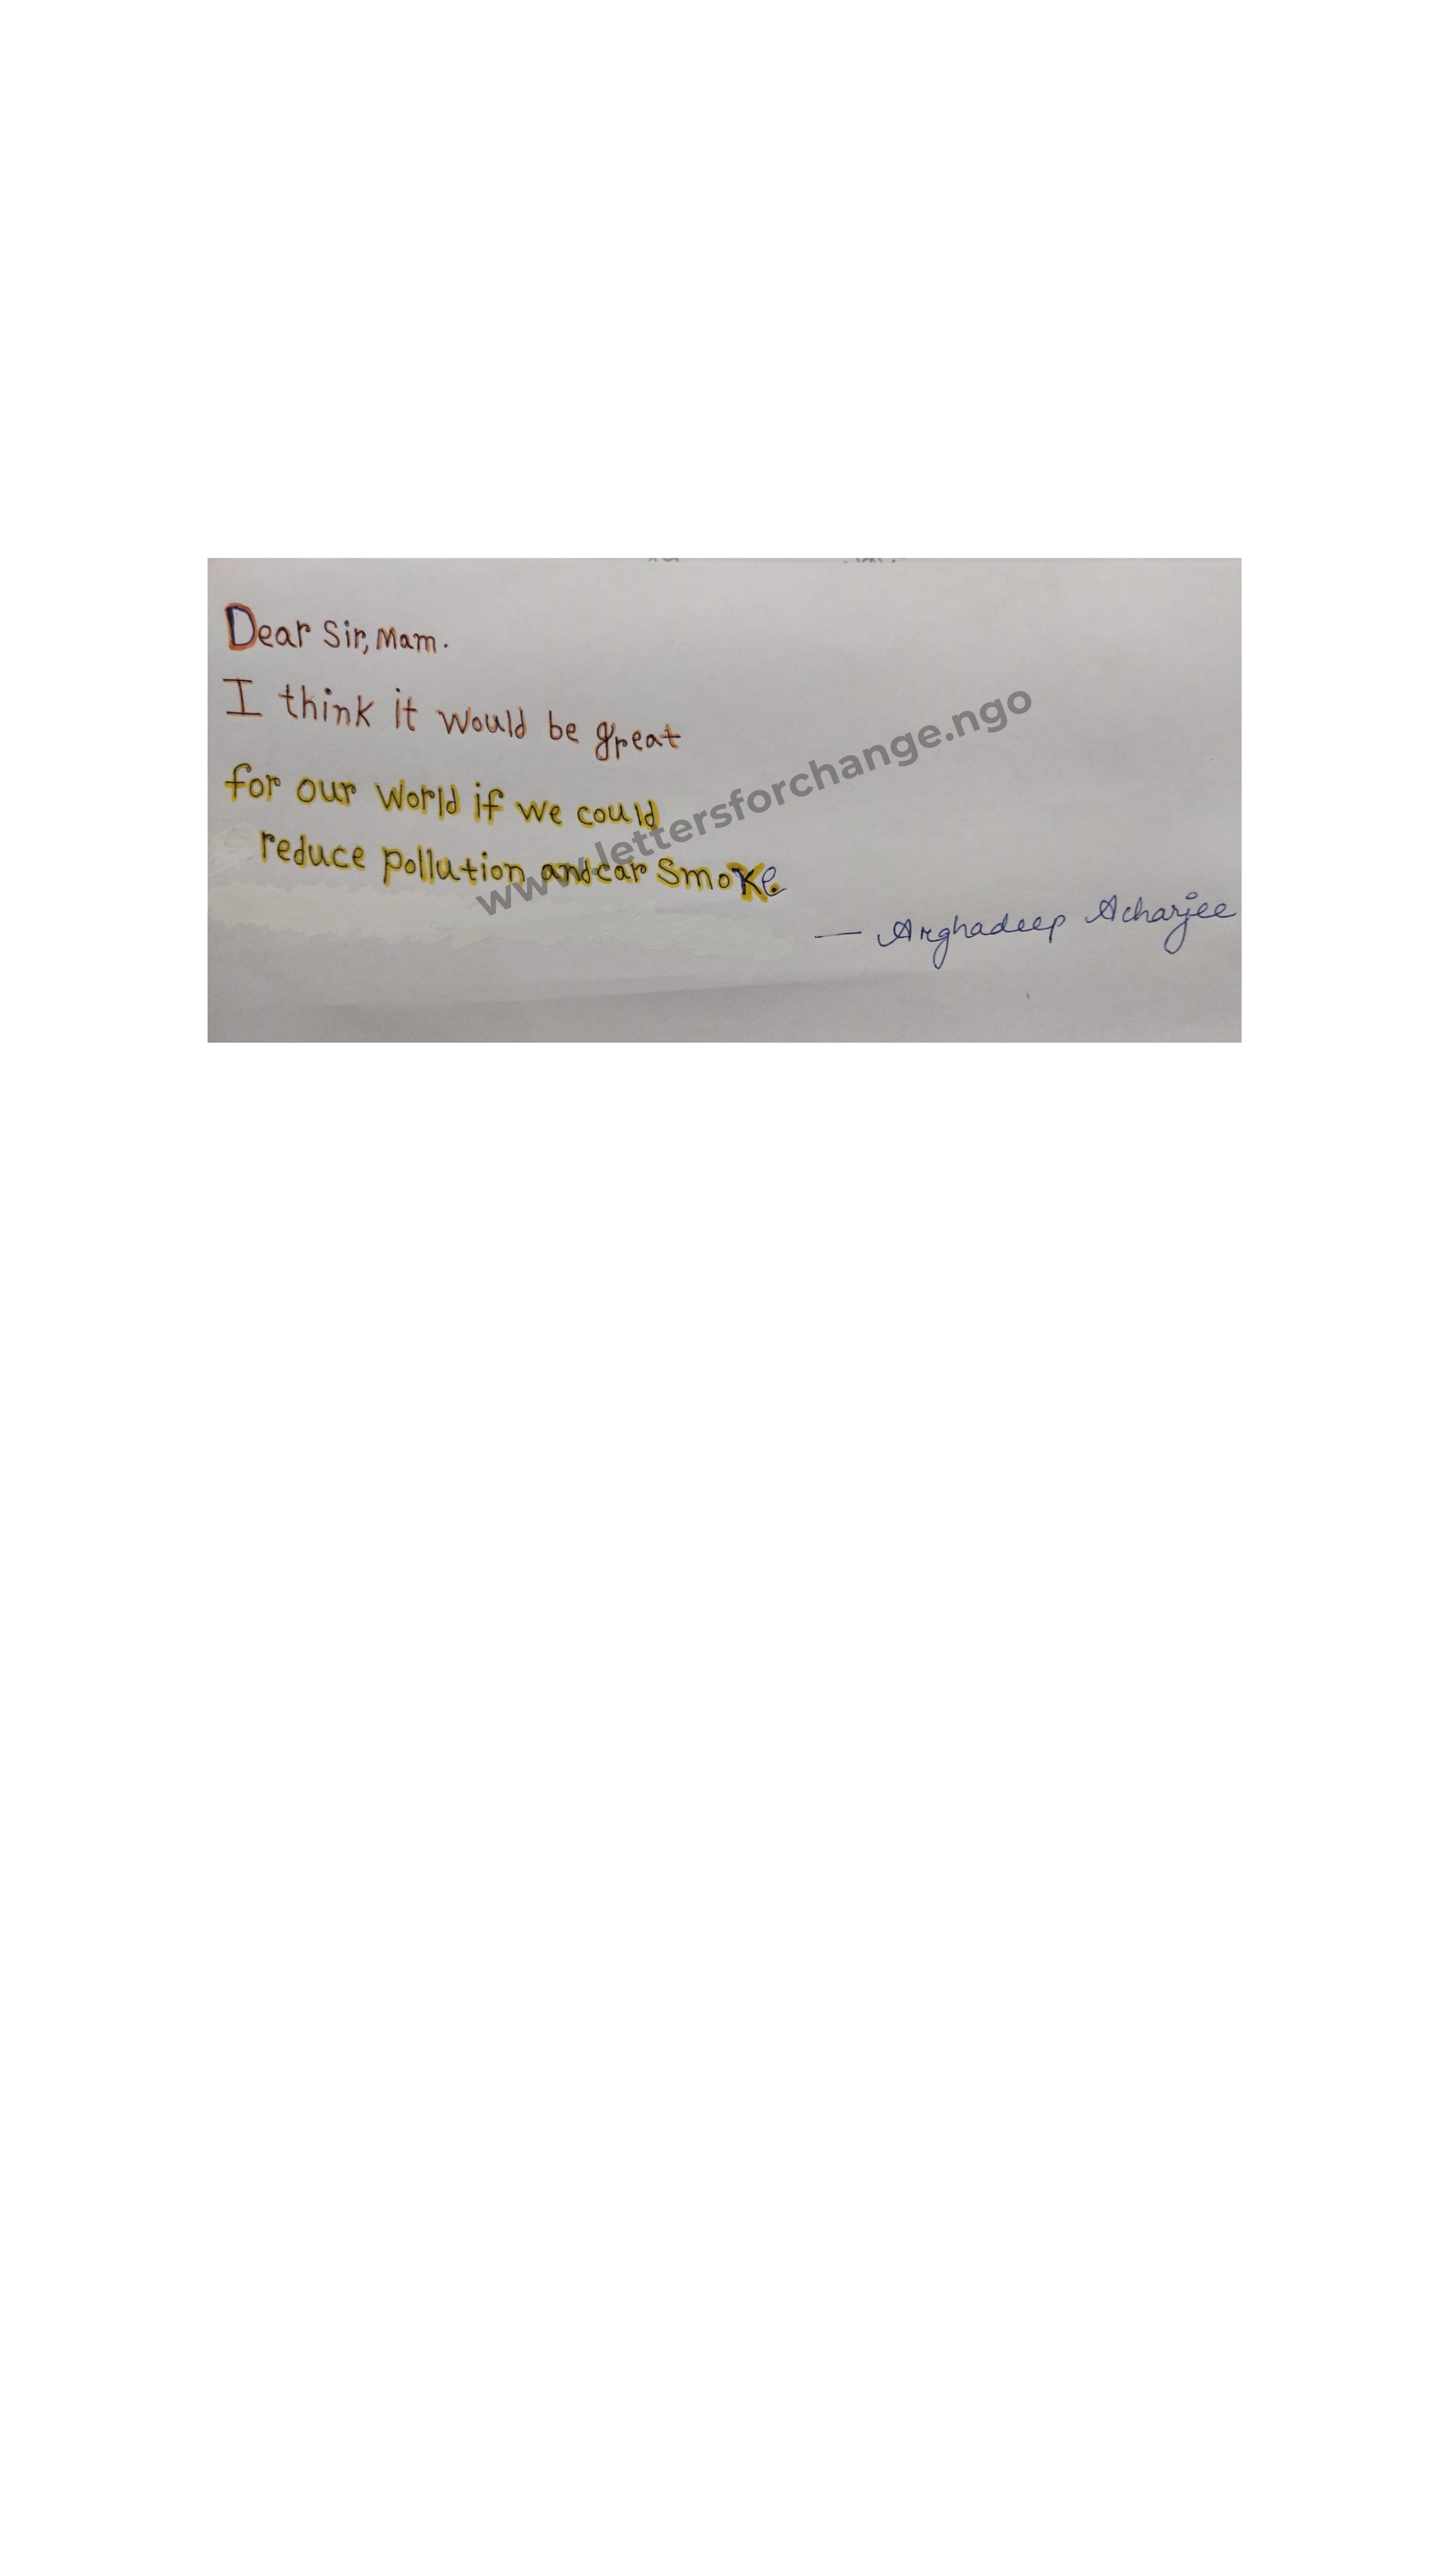 Dear Sir, Mam.
I think it would be great
for our world if we could
reduce pollution and car smoke.
— Arghadeep Acharjee
www.lettersforchange.ngo